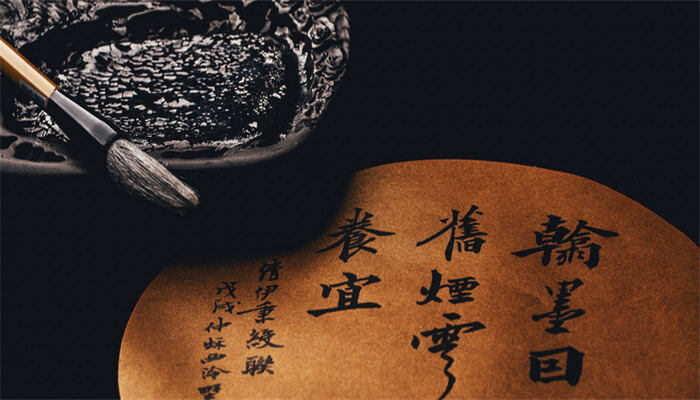 翰墨因
舊煙雲
養宜
清伊秉綬聯
戊戌
西泠